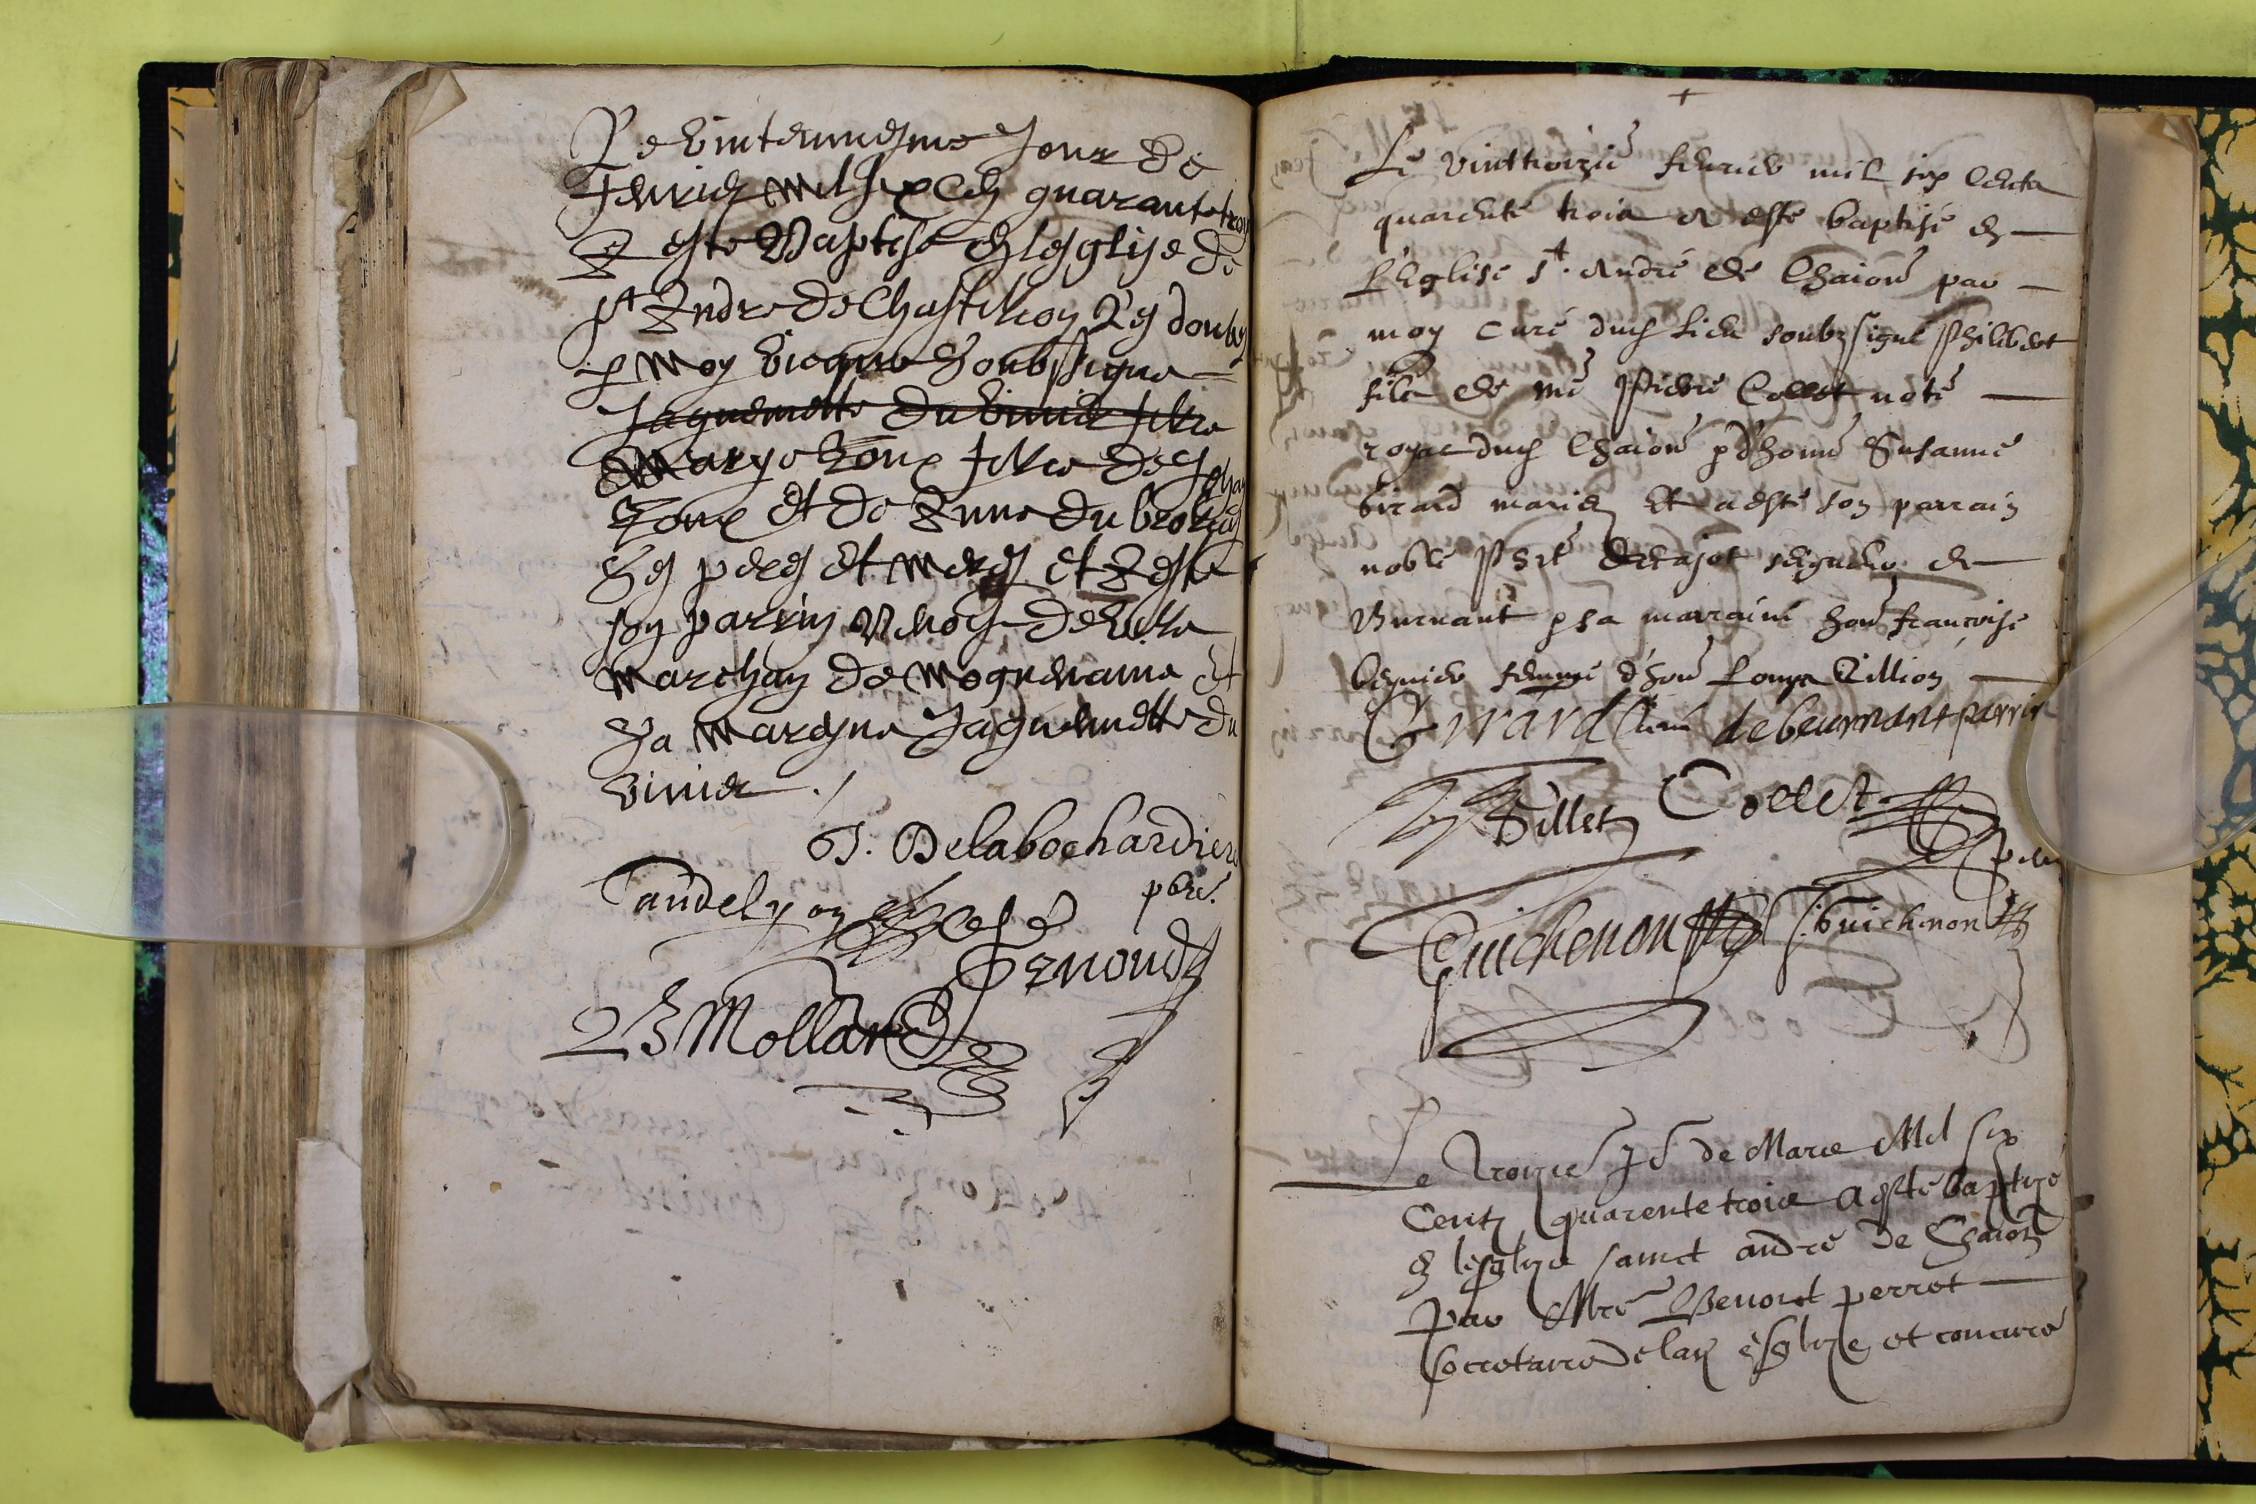 Le vintuniesme Jour de
febvrier mil six Cen quarante troy
A este Baptisé en lesglise de
st Andre de Chastillon Les dombes
p moy vicaire soubssigne
Jaquemette du vivier fillie
Marye Roux fillie de Jehan
Roux et de Anne du
Ses peres et meres et A este
son parrin Benoist de
marchan de et
Sa mareyne Jaquemette du
vivier
J. Delabochardiere
pbre.
Mollard
Le vinttroizie febvrier mil six cents
quarente trois a esté baptisé en
L'Eglise st. André de Chaion par
moy curé dud lieu soubzsigné Philibert
filz de me Pierre Collet note
royal dud Chaion & d'hone Susanne
Girard mariez Et a esté son parrain
noble seigneur de
Burnant & sa marraine hone francoise
femme d'hon Louys Tillion
Girard Curé debeurnant parrin
Tillet Collet
Guichenon Guichenon
Le troizie jor de Mars Mil six
Centz quarente trois a esté baptizé
en lesglize sainct andré de Chaion
par Mre Benoist perret
secretaire de lad esglize et concuré